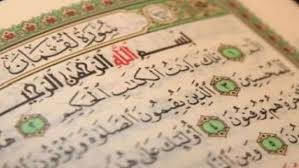 سُورَةُ لُقْمَانَ
بِسْمِ اللَّهِ الرَّحْمَٰنِ الرَّحِيمِ
١ تِلْكَ ءَايَٰتُ الْكِتَٰبِ الْحَكِيمِ ٢
لِّلْمُحْسِنِينَ ٣ الَّذِينَ يُقِيمُونَ الصَّلَوٰةَ وَيُؤْتُونَ
هُمْ يُوقِنُونَ ٤ أُو۟لَٰٓئِكَ عَلَىٰ